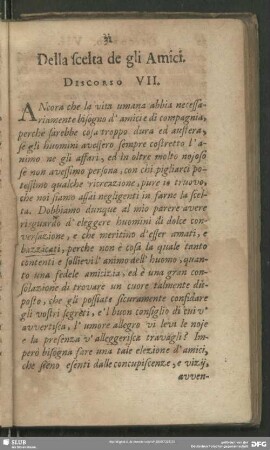 31
Della scelta de gli Amici.
DISCORSO VII.
ANcora che la vita umana abbia necessa-
riamente bisogno d'amici e di compagnia,
perchè sarebbe cosa troppo dura ed austera,
se gli huomini avessero sempre costretto l'a-
nimo ne gli affari, ed in oltre molto nojoso
se non avessimo persona, con chi pigliarci po-
tessimo qualche ricreazione, pure io truovo,
che noi siamo assai negligenti in farne la scel-
ta. Dobbiamo dunque al mio parere avere
risguardo d'eleggere huomini di dolce con-
versazione, e che meritino d'esser amati, e
bazzicati, perche non è cosa la quale tanto
contenti e sollievi l'animo dell'huomo, quan-
to una fedele amizitia, ed è una gran con-
solazione di trovare un cuore talmente di-
posto, che gli possiate sicuramente confidare
gli vostri segreti, e'l buon consiglio di cui v'
avvertisca, l'umore allegro vi levi le noje
e la presenza v'alleggerisca travagli! Im-
però bisogna fare una tale elezione d'amici,
che sieno esenti dalle concupiscenze, e vizij,
avven-
SLUB
DFG